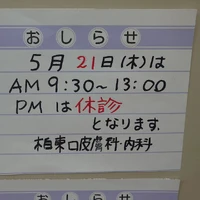 おしらせ
5月21日(木)は
AM 9:30~13:00
PM は休診
となります.
柏東口皮膚科・内科